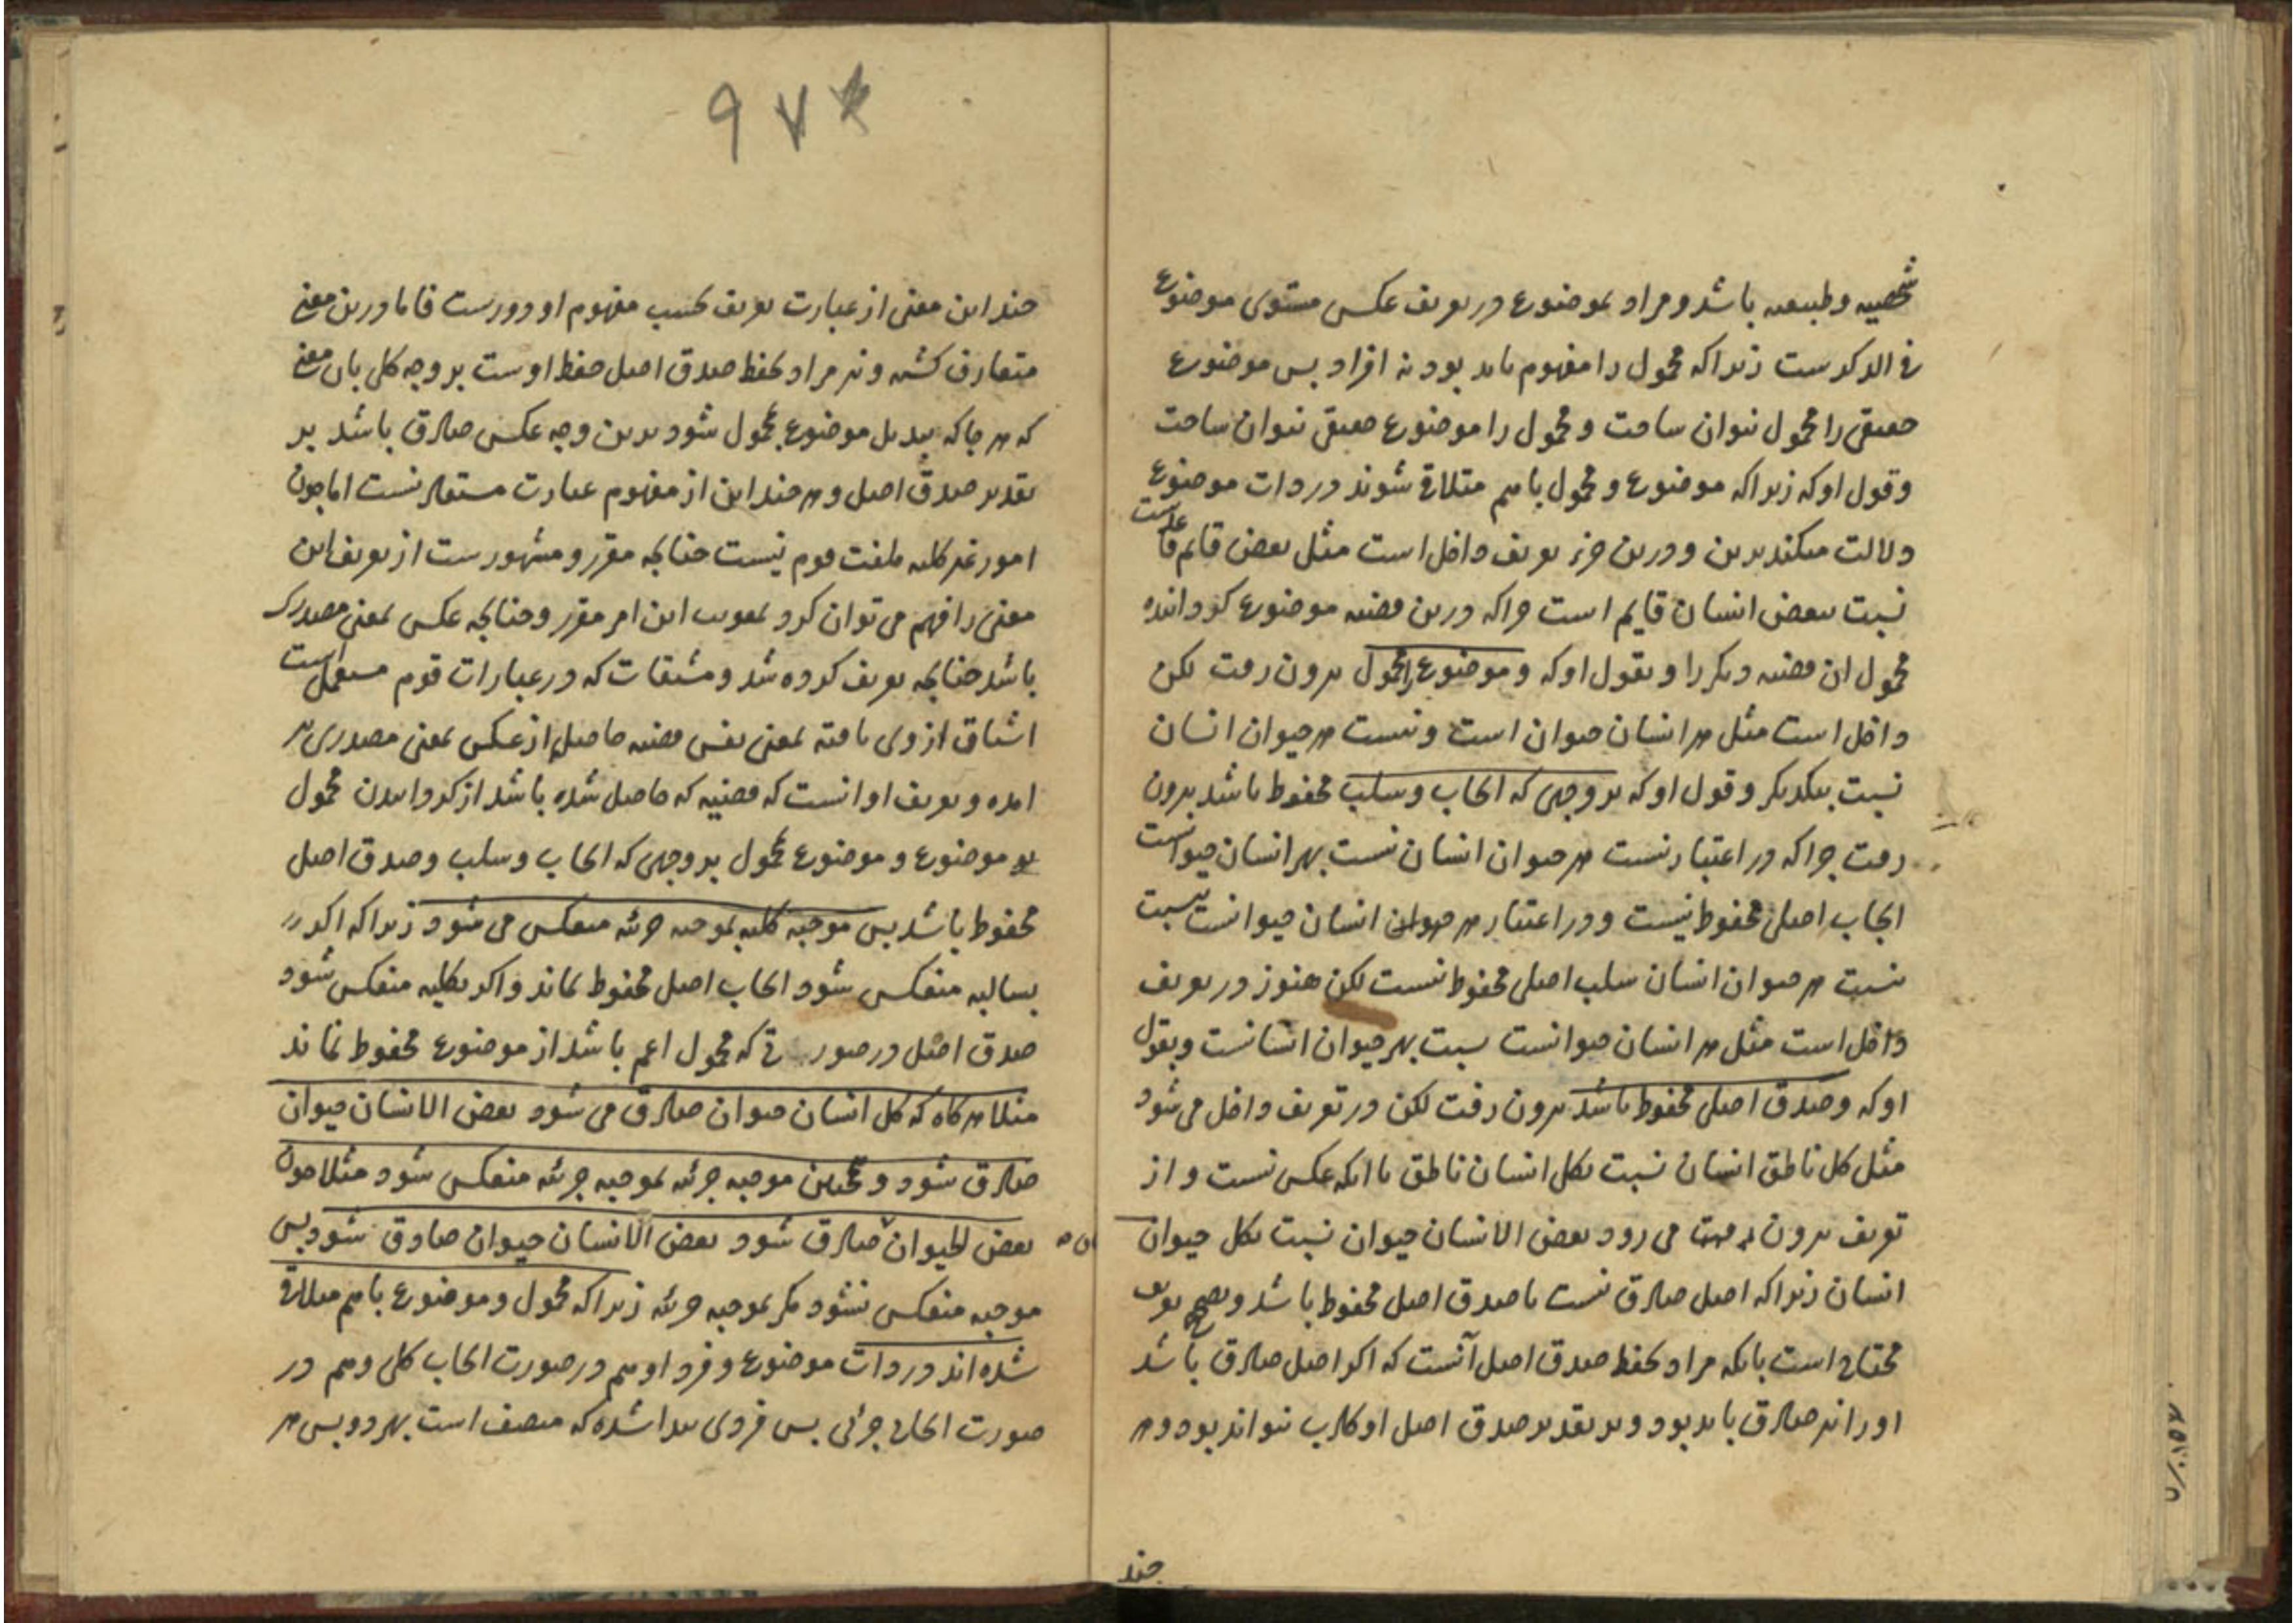 شخصیه و طبیعیه باشد و مراد بموضوع در تعریف عکس مستوی موضوع
فی الذکرست زیراکه محمول را مفهوم باید بود نه افراد پس موضوع
حقیقی را محمول نتوان ساخت و محمول را موضوع حقیقی نتوان ساخت
و قول او که زیراکه موضوع و محمول باهم متلاقی شوند در ذات موضوع
دلالت میکند برین و درین جزء تعریف داخل است مثل بعض قایم
نسبت ببعض انسان قایم است چراکه درین قضیه موضوع گردانده
محمول ان قضیه دیگر را و بقول او که و موضوع را محمول بیرون رفت لکن
داخل است مثل هر انسان حیوان است و نیست هر حیوان انسان
نسبت بیکدیگر و قول او که بر وجهی که ایجاب و سلب محفوظ باشد بیرون
رفت چراکه در اعتبار نیست هر حیوان انسان نسبت بهر انسان حیوانست
ایجاب اصلی محفوظ نیست و در اعتبار هر حیوان انسان حیوانست نسبت
نیست هر حیوان انسان سلب اصلی محفوظ نیست لکن هنوز در تعریف
داخل است مثل هر انسان حیوانست نسبت بهر حیوان انسانست و بقول
او که و صدق اصلی محفوظ باشد بیرون رفت لکن در تعریف داخل می شود
مثل کل ناطق انسان نسبت بکل انسان ناطق با انکه عکس نیست و از
تعریف بیرون می رود بعض الانسان حیوان نسبت بکل حیوان
انسان زیراکه اصل صادق نیست تا صدق اصل محفوظ باشد و تصحیح تعریف
محتاج است بانکه مراد بحفظ صدق اصل آنست که اگر اصل صادق باشد
او را نیز صادق باید بود و بر تقدیر صدق اصل او کاذب نتواند بود و هر
چند
۹۷
چند این معنی از عبارت تعریف بحسب مفهوم او دورست فاما درین معنی
متعارف کشته و نیز مراد بحفظ صدق اصل حفظ اوست بر وجه کلی بان معنی
که هر جا که تبدیل موضوع بمحمول شود برین وجه عکس صادق باشد بر
تقدیر صدق اصل و هر چند این از مفهوم عبارت مستفاد نیست اما چون
امور غیر کلیه ملتفت قوم نیست چنانچه مقرر و مشهورست از تعریف این
معنی را فهم می توان کرد بمعونت این امر مقرر و چنانچه عکس بمعنی مصدری
باشد چنانچه تعریف کرده شد و مشتقات که در عبارات قوم مستعمل است
اشتقاق از وی یافته بمعنی نفس قضیه حاصل از عکس بمعنی مصدری نیز
امده و تعریف او انست که قضیه که حاصل شده باشد از کردانیدن محمول
موضوع و موضوع محمول بر وجهی که ایجاب و سلب و صدق اصل
محفوظ باشد پس موجبه کلیه بموجبه جزئیه منعکس می شود زیراکه اگر
بسالبه منعکس شود ایجاب اصل محفوظ نماند و اگر بکلیه منعکس شود
صدق اصل در صورتی که محمول اعم باشد از موضوع محفوظ نماند
مثلا هر گاه که کل انسان حیوان صادق می شود بعض الانسان حیوان
صادق شود و همچنین موجبه جزئیه بموجبه جزئیه منعکس شود مثلا چون
بعض الحیوان صادق شود بعض الانسان حیوان صادق شود پس
موجبه منعکس نشود مگر بموجبه جزئیه زیراکه محمول و موضوع باهم متلاقی
شده اند در ذات موضوع و فرد او هم در صورت ایجاب کلی و هم در
صورت ایجاب جزئی پس فردی پیدا شده که متصف است بهر دو پس هر